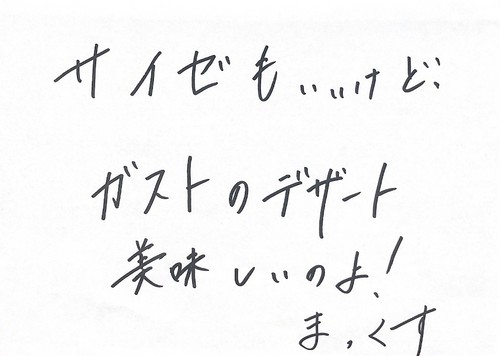 サイゼもいいけど、
ガストのデザート
美味しいのよ!
まっくす